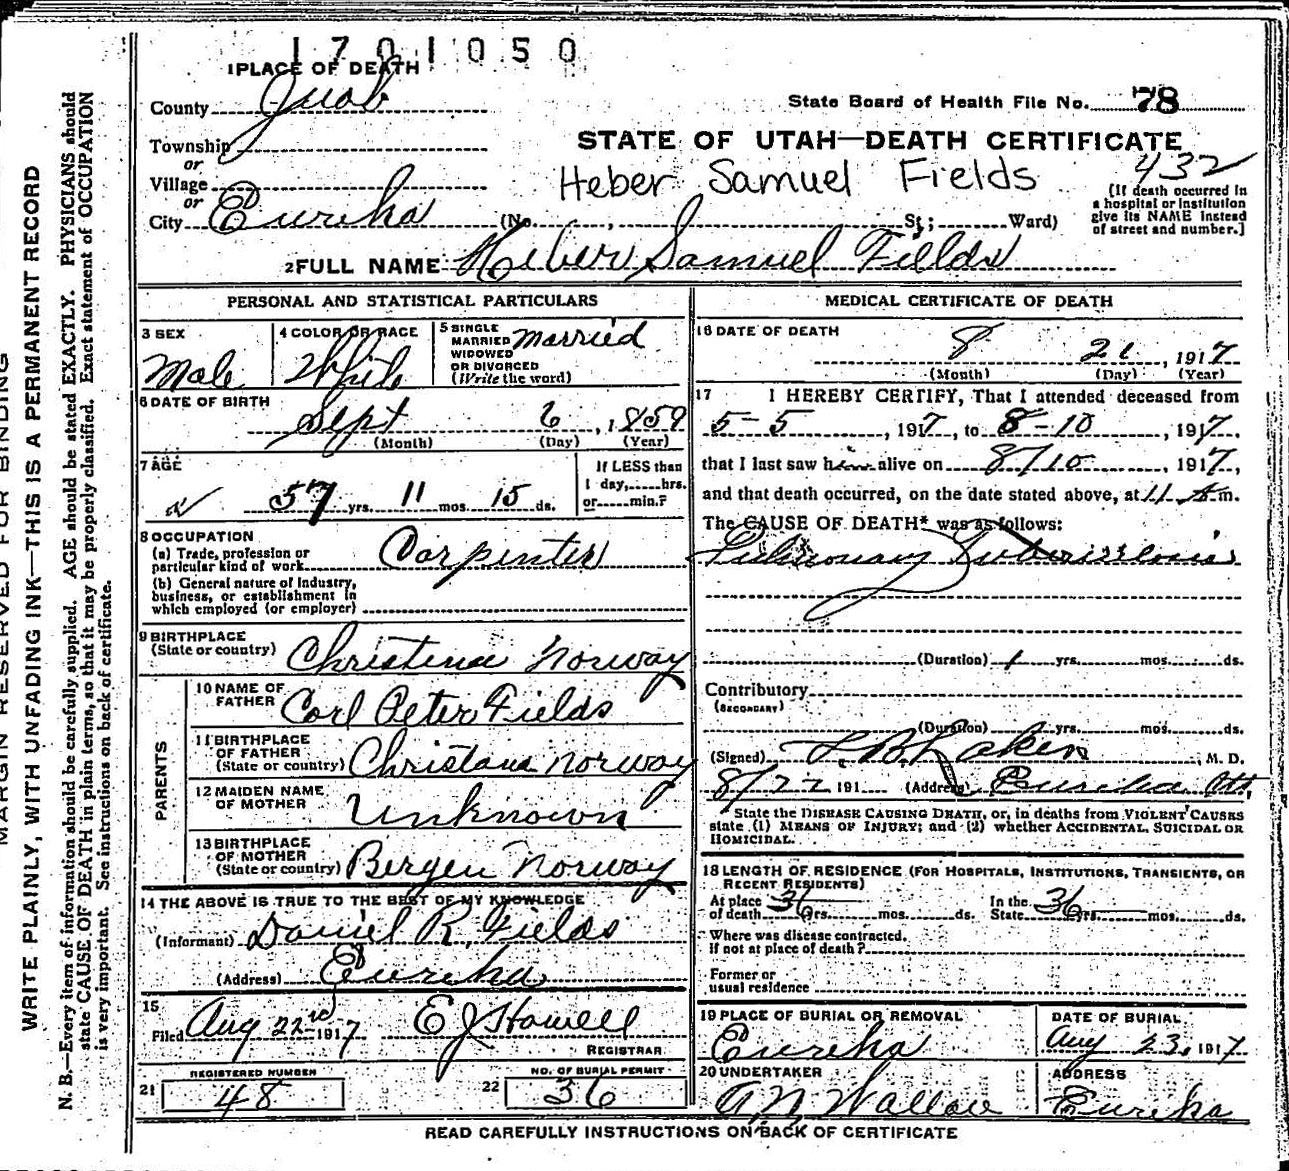 1701050
1 PLACE OF DEATH
County Juab
State Board of Health File No. 78
Township
or
Village
or
City Eureka
STATE OF UTAH—DEATH CERTIFICATE
432
Heber Samuel Fields
(No. , St; Ward)
[If death occurred in
a hospital or institution
give its NAME instead
of street and number.]
2 FULL NAME Heber Samuel Fields
PERSONAL AND STATISTICAL PARTICULARS
3 SEX
Male
4 COLOR OR RACE
White
5 SINGLE
MARRIED
WIDOWED
OR DIVORCED
(Write the word)
Married
6 DATE OF BIRTH
Sept 6, 1859
(Month) (Day) (Year)
7 AGE
57 yrs. 11 mos. 15 ds.
If LESS than
1 day,......hrs.
or......min.?
8 OCCUPATION
(a) Trade, profession or
particular kind of work
Carpenter
(b) General nature of Industry,
business, or establishment in
which employed (or employer)
9 BIRTHPLACE
(State or country)
Christena Norway
PARENTS
10 NAME OF
FATHER
Carl Peter Fields
11 BIRTHPLACE
OF FATHER
(State or country)
Christana Norway
12 MAIDEN NAME
OF MOTHER
Unknown
13 BIRTHPLACE
OF MOTHER
(State or country)
Bergen Norway
14 THE ABOVE IS TRUE TO THE BEST OF MY KNOWLEDGE
(Informant) Daniel R. Fields
(Address) Eureka
15
Filed Aug 22nd 1917 E J Howell
REGISTRAR
21 REGISTERED NUMBER
48
22 NO. OF BURIAL PERMIT
36
MEDICAL CERTIFICATE OF DEATH
16 DATE OF DEATH
8 21, 1917
(Month) (Day) (Year)
17 I HEREBY CERTIFY, That I attended deceased from
5-5, 1917, to 8-10, 1917,
that I last saw him alive on 8/10, 1917,
and that death occurred, on the date stated above, at 11 m.
The CAUSE OF DEATH* was as follows:
Pulmonary Tuberculosis
(Duration) 1 yrs. mos. ds.
Contributory
(SECONDARY)
(Duration) yrs. mos. ds.
(Signed) M. D.
8/22 191 (Address) Eureka Ut,
State the DISEASE CAUSING DEATH, or, in deaths from VIOLENT CAUSES
state (1) MEANS OF INJURY; and (2) whether ACCIDENTAL, SUICIDAL OR
HOMICIDAL.
18 LENGTH OF RESIDENCE (FOR HOSPITALS, INSTITUTIONS, TRANSIENTS, OR
RECENT RESIDENTS)
At place
of death 36 yrs. mos. ds.
In the
State 36 yrs. mos. ds.
Where was disease contracted.
if not at place of death?
Former or
usual residence
19 PLACE OF BURIAL OR REMOVAL
Eureka
DATE OF BURIAL
Aug 23, 1917
20 UNDERTAKER
ADDRESS
Eureka
READ CAREFULLY INSTRUCTIONS ON BACK OF CERTIFICATE
MARGIN RESERVED FOR BINDING
WRITE PLAINLY, WITH UNFADING INK—THIS IS A PERMANENT RECORD
N. B.—Every item of information should be carefully supplied. AGE should be stated EXACTLY. PHYSICIANS should
state CAUSE OF DEATH in plain terms, so that it may be properly classified. Exact statement of OCCUPATION
is very important. See instructions on back of certificate.